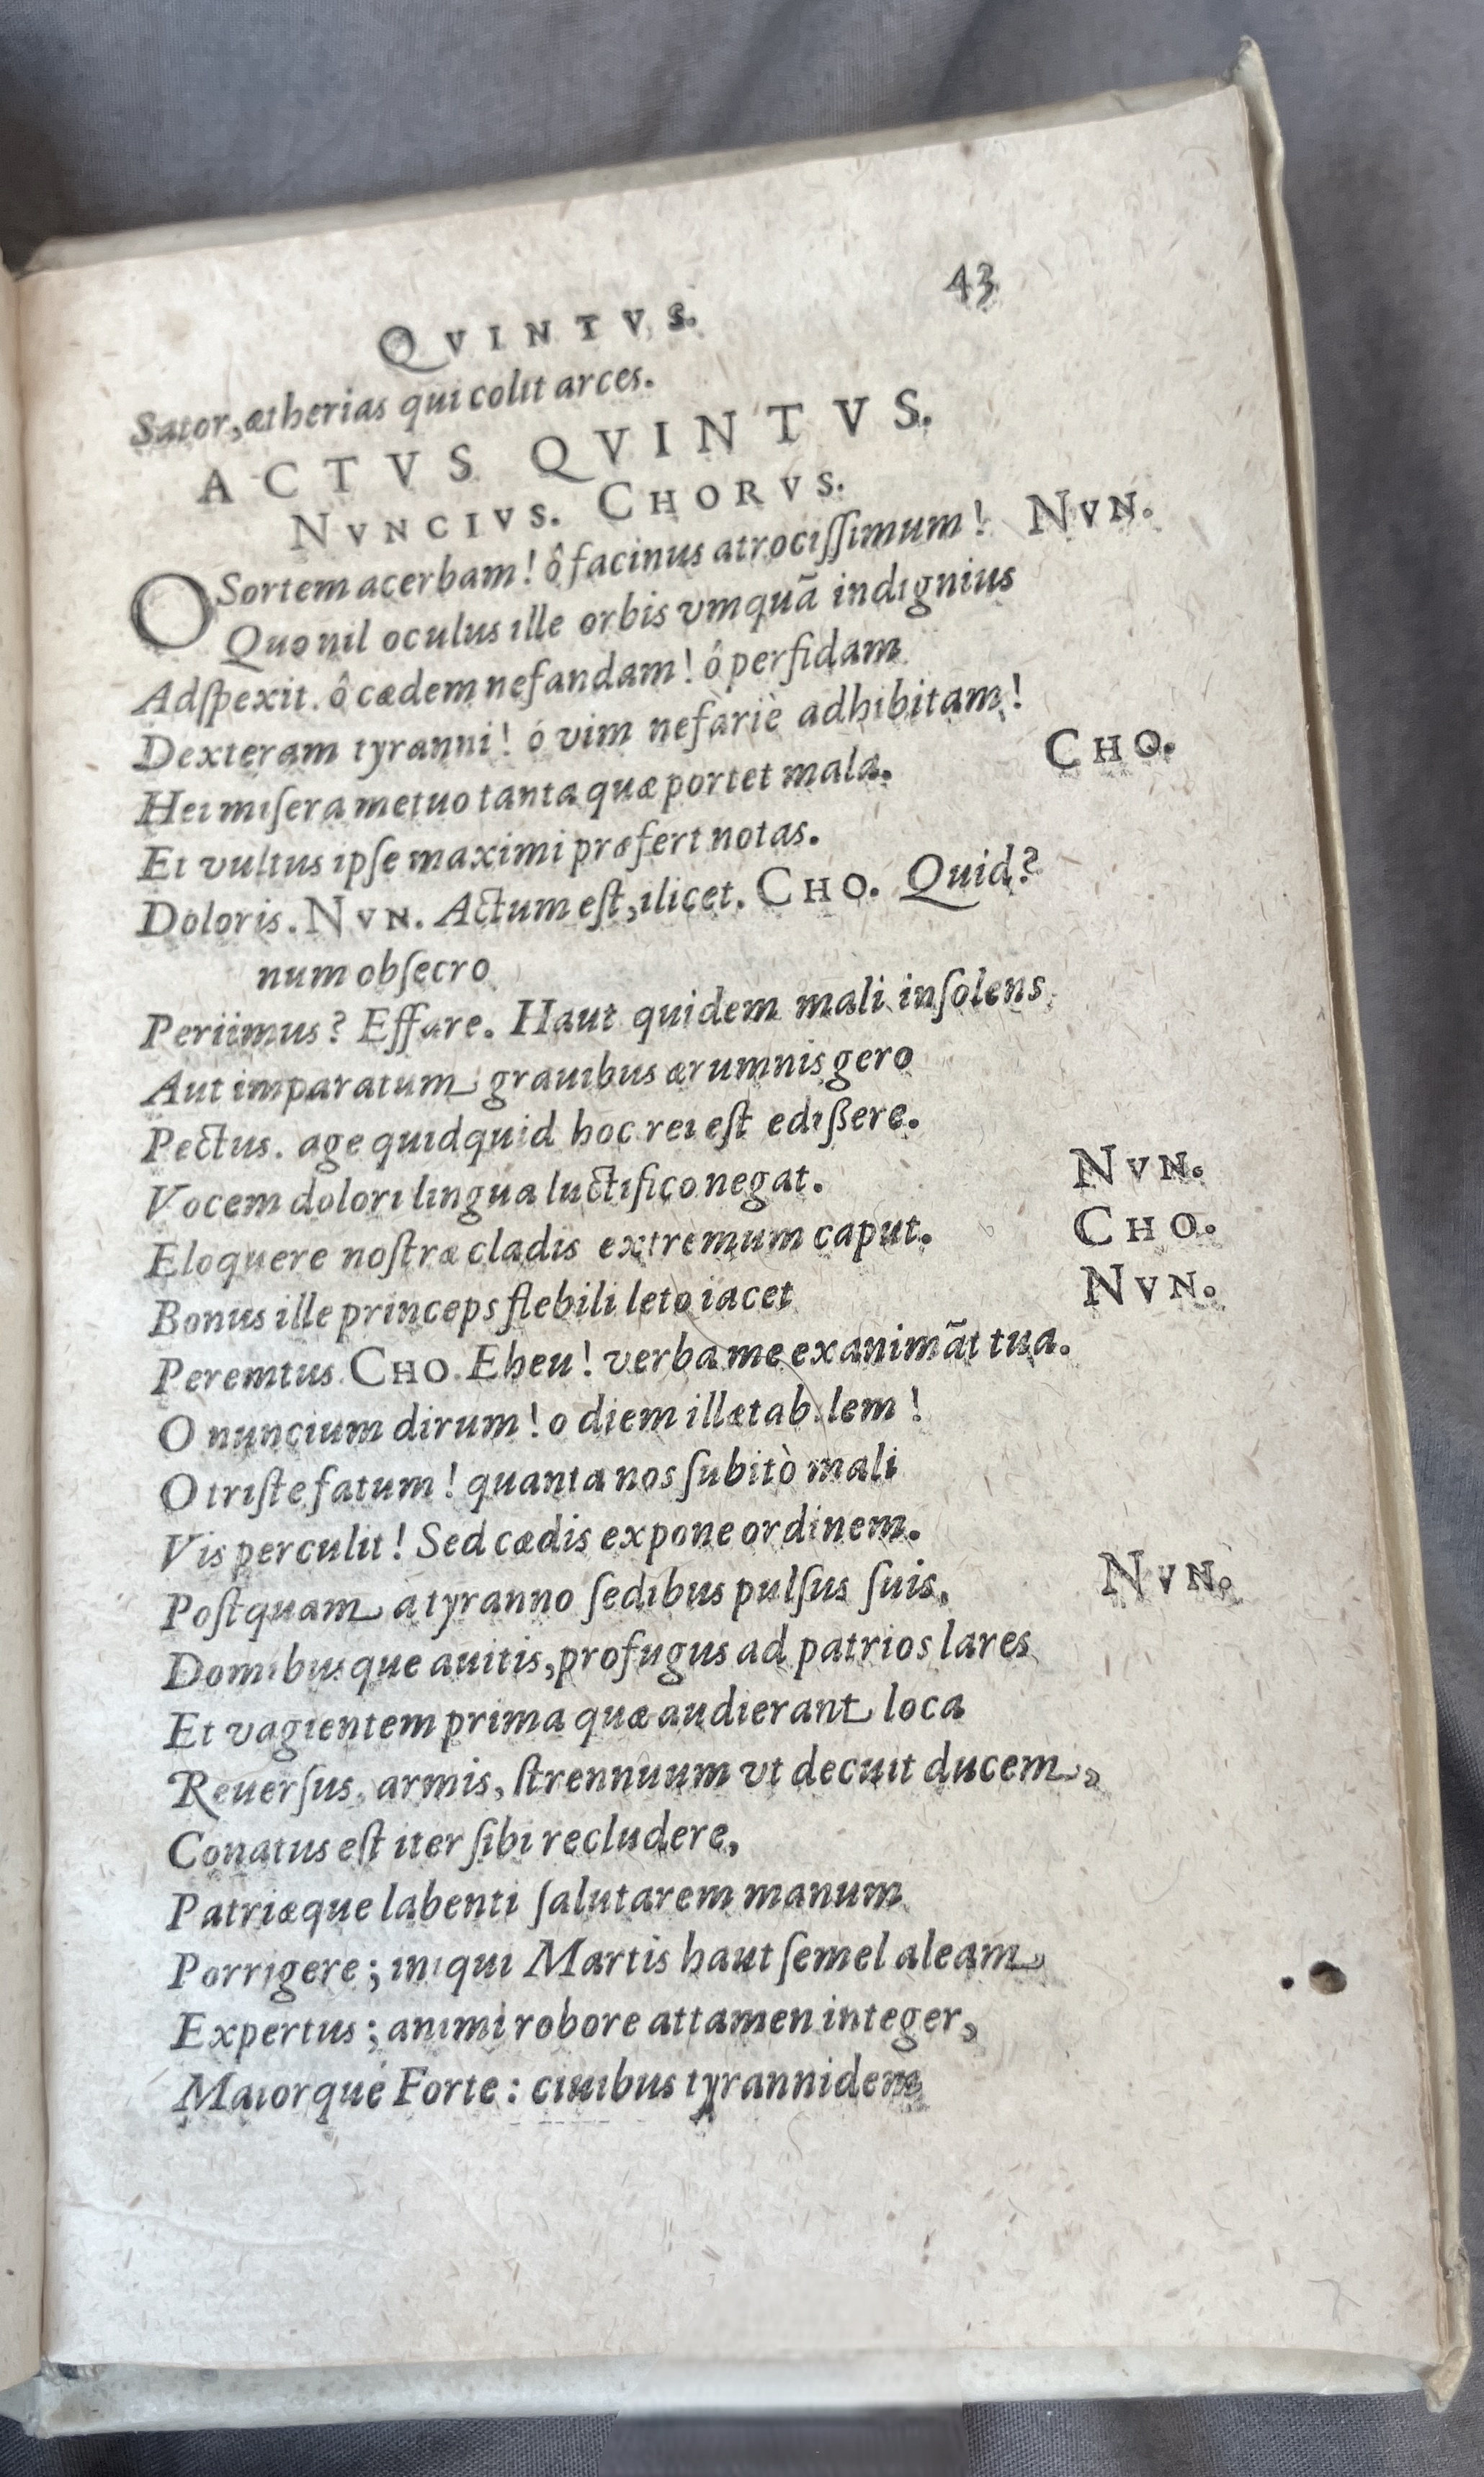 QVINTVS. 43
Sator, ætherias qui colit arces.
ACTVS QVINTVS.
NVNCIVS. CHORVS.
O Sortem acerbam! ô facinus atrocißimum! NVN.
Quo nil oculus ille orbis vmquã indignius
Adſpexit. ô cædem nefandam! ô perfidam
Dexteram tyranni! ó vim nefàriè adhibitam!
Hei miſera metuo tanta quæ portet mala. CHO.
Et vultus ipſe maximi præfert notas.
Doloris. NVN. Actum eſt, ilicet. CHO. Quid?
num obſecro
Periimus? Effare. Haut quidem mali inſolens
Aut imparatum grauibus ærumnis gero
Pectus. age quidquid hoc rei eſt edißere.
Vocem dolori lingua luctifico negat. NVN.
Eloquere noſtræ cladis extremum caput. CHO.
Bonus ille princeps flebili leto iacet NVN.
Peremtus. CHO. Eheu! verba me exanimãt tua.
O nuncium dirum! o diem illætab.lem!
O triſte fatum! quanta nos ſubitò mali
Vis perculit! Sed cædis expone ordinem.
Poſtquam a tyranno ſedibus pulſus ſuis, NVN.
Domibusque auitis, profugus ad patrios lares
Et vagientem prima quæ audierant loca
Reuerſus, armis, ſtrennuum vt decuit ducem,
Conatus eſt iter ſibi recludere,
Patriæque labenti ſalutarem manum
Porrigere; iniqui Martis haut ſemel aleam
Expertus; animi robore attamen integer,
Maiorque Forte: ciuibus tyrannidem